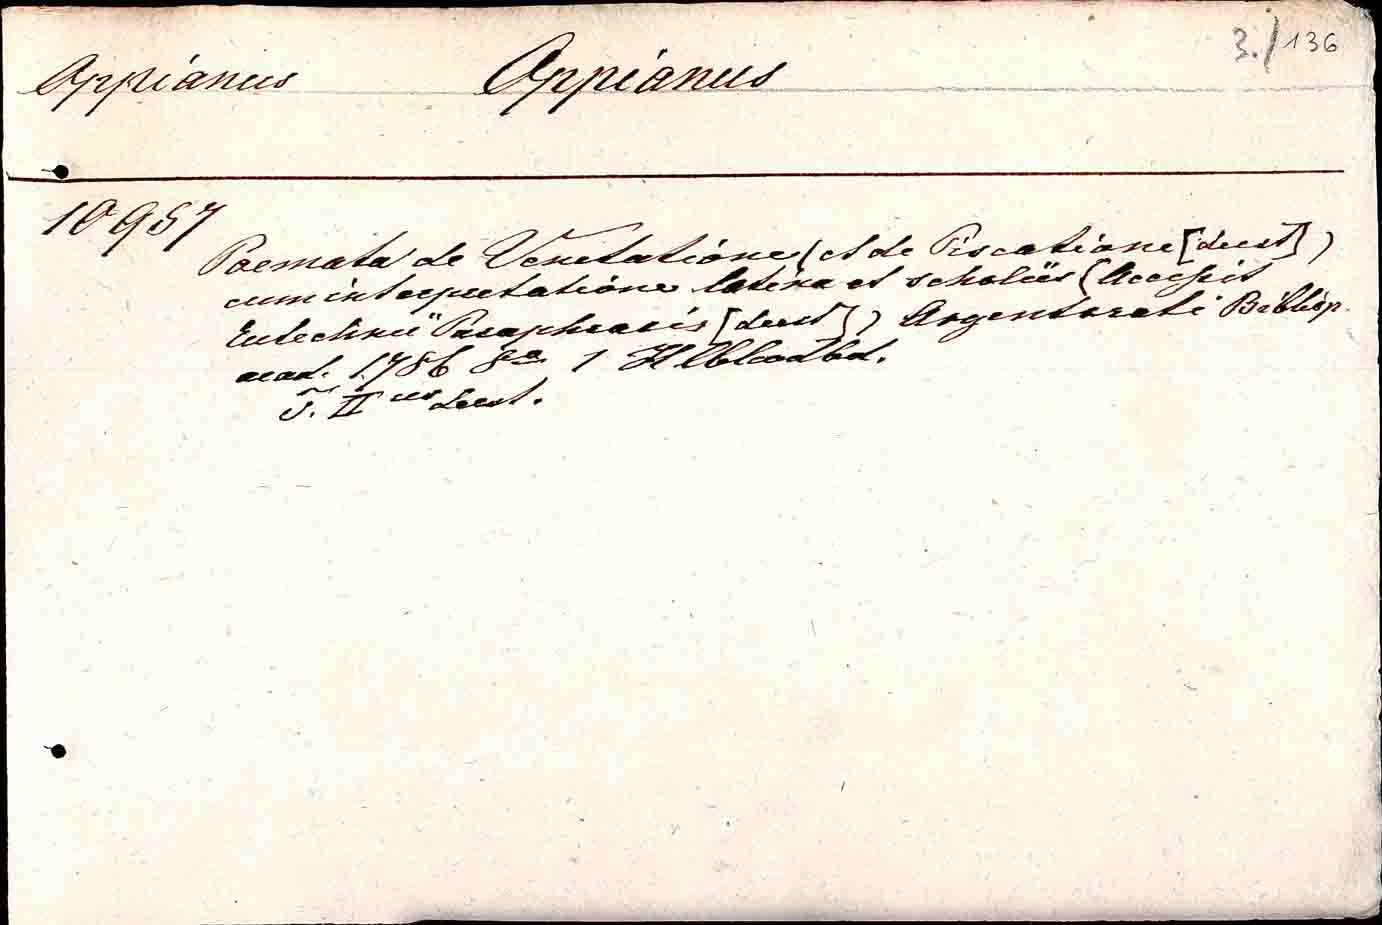 3./136
Appianus Appianus
10957
Poemata de Venatione (et de Piscatione [deest])
cum interpretatione latina et scholiis (Accessit
Eutechnii Paraphrasis [deest]) Argentorati Bibliop.
acad. 1786 8° 1 Hlblwdbd.
T. II us deest.